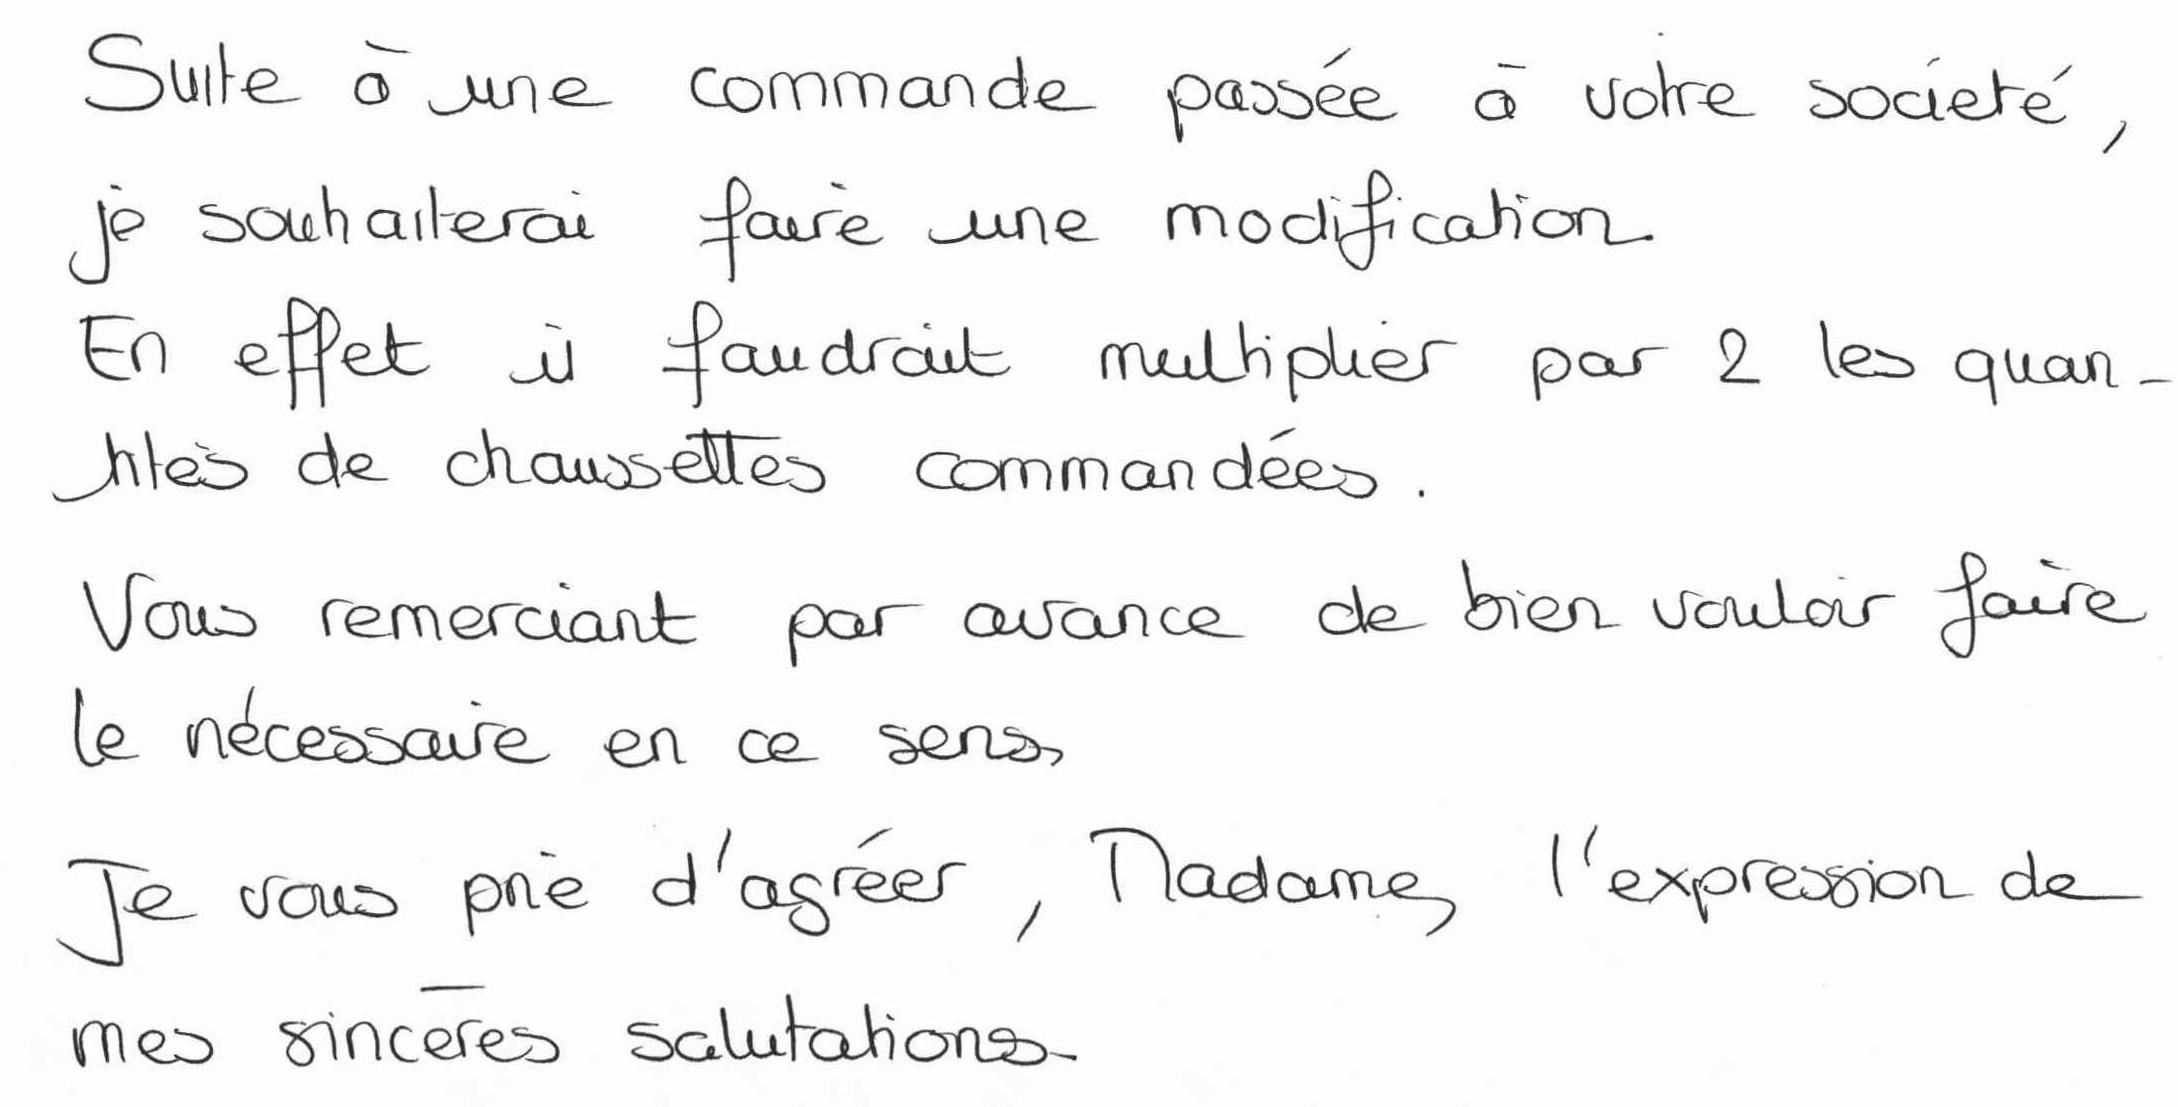 Suite à une commande passée à votre société,
je souhaiterai faire une modification.
En effet il faudrait multiplier par 2 les quan-
tités de chaussettes commandées.
Vous remerciant par avance de bien vouloir faire
le nécessaire en ce sens,
Je vous prie d'agréer, Madame, l'expression de
mes sincères salutations.